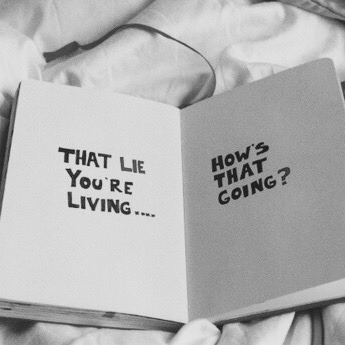 THAT LIE
YOU'RE
LIVING....
HOW'S
THAT
GOING?